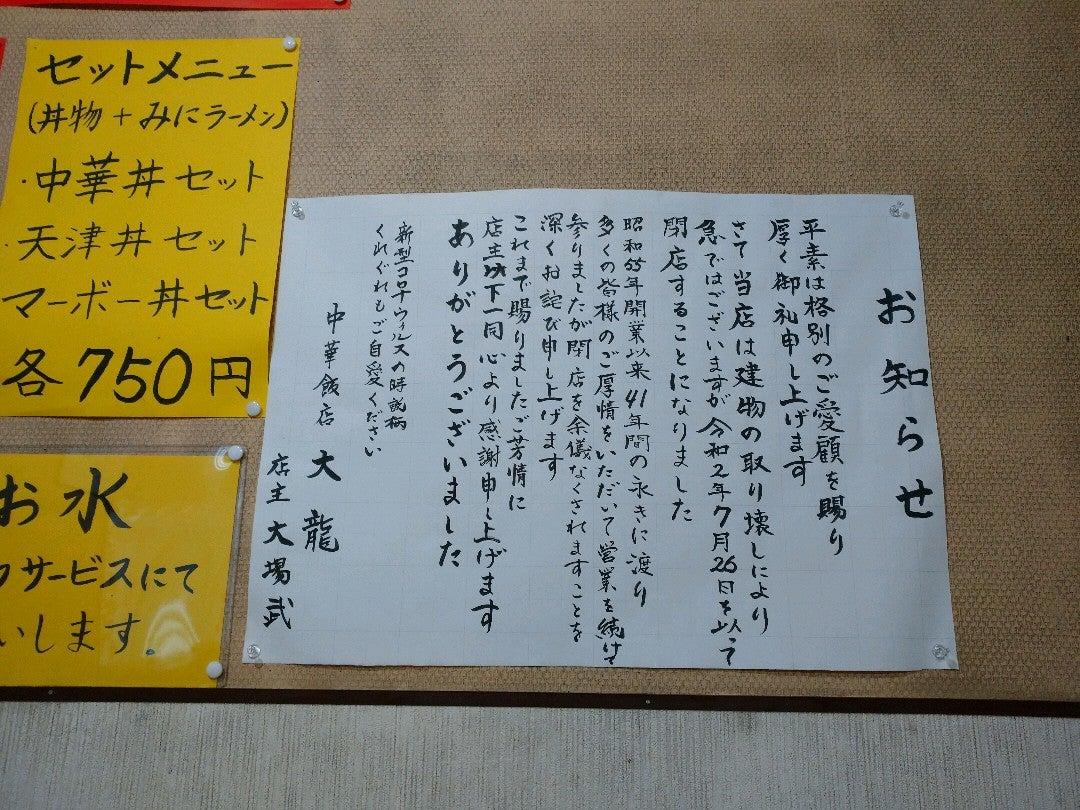 セットメニュー
(丼物+みにラーメン)
・中華丼セット
・天津丼セット
マーボー丼セット
各750円
お水
フサービスにて
いします.
お知らせ
平素は格別のご愛顧を賜り
厚く御礼申し上げます
さて当店は建物の取り壊しにより
急ではございますが令和2年7月26日を以って
閉店することになりました
昭和55年開業以来41年間の永きに渡り
多くの皆様のご厚情をいただいて営業を続けて
参りましたが閉店を余儀なくされますことを
深くお詫び申し上げます
これまで賜りましたご芳情に
店主以下一同心より感謝申し上げます
ありがとうございました
新型コロナウィルスの時説柄
くれぐれもご自愛ください
中華飯店 大龍
店主 大場武